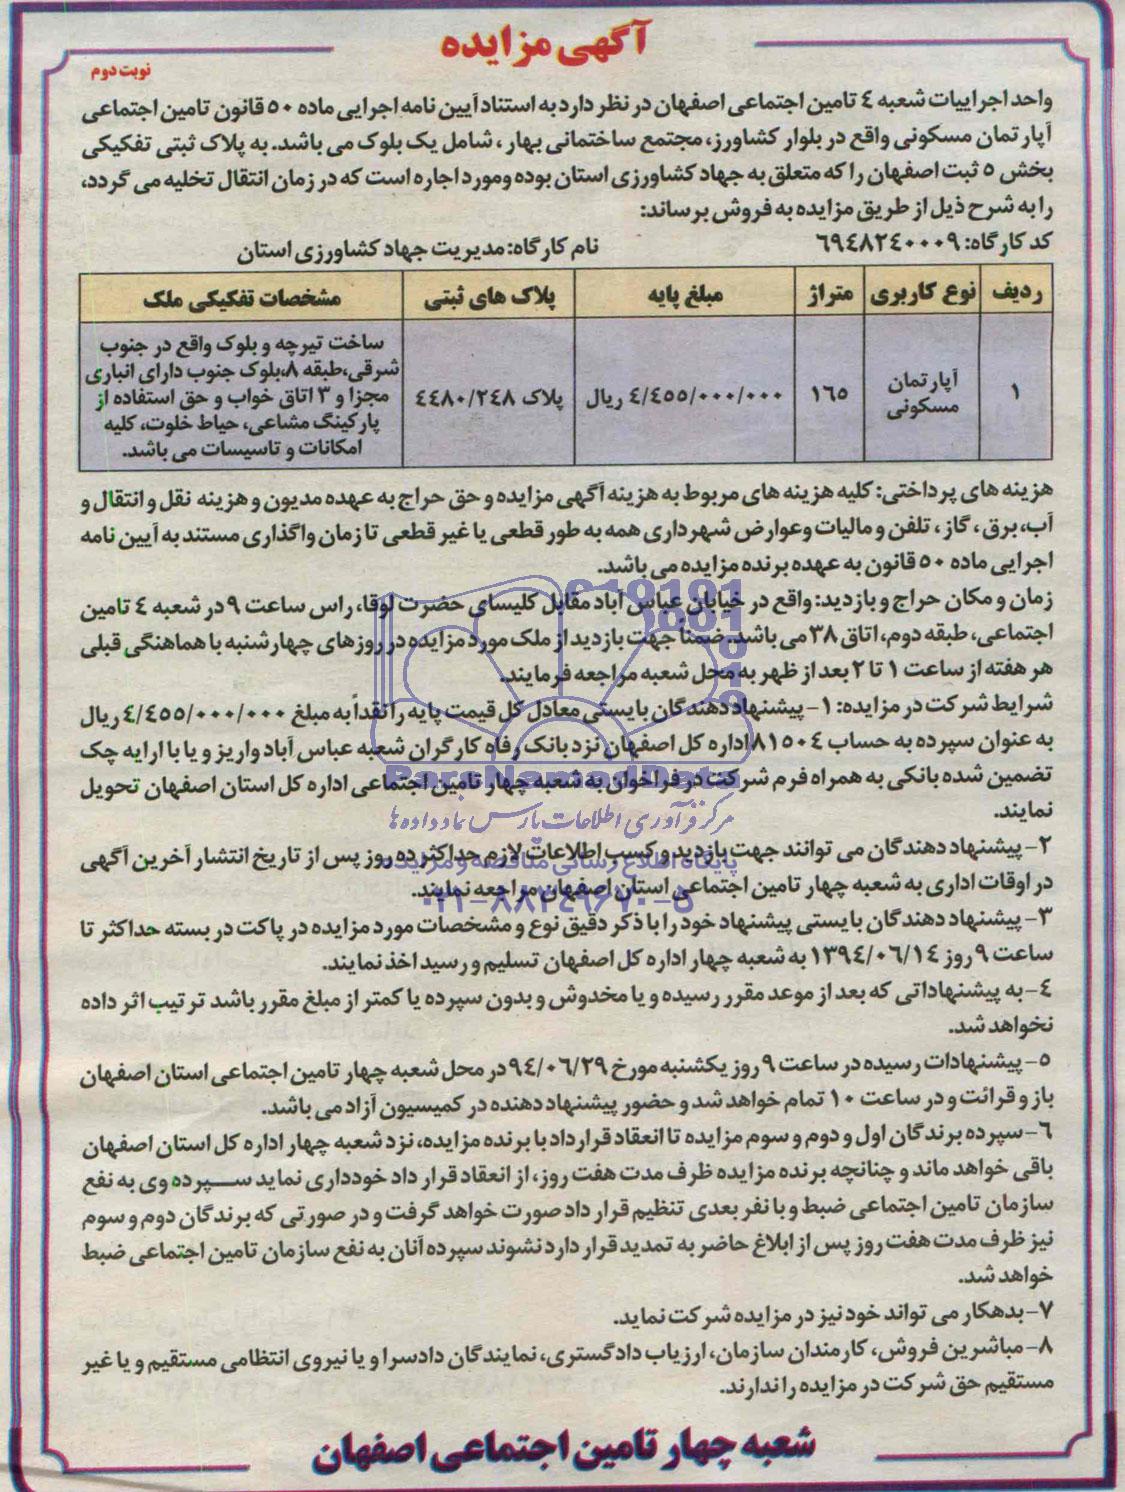 آگهی مزایده
نوبت دوم
واحد اجراییات شعبه ٤ تامین اجتماعی اصفهان در نظر دارد به استناد آیین نامه اجرایی ماده ٥٠ قانون تامین اجتماعی
آپارتمان مسکونی واقع در بلوار کشاورز، مجتمع ساختمانی بهار، شامل یک بلوک می باشد. به پلاک ثبتی تفکیکی
بخش ٥ ثبت اصفهان را که متعلق به جهاد کشاورزی استان بوده ومورد اجاره است که در زمان انتقال تخلیه می گردد،
را به شرح ذیل از طریق مزایده به فروش برساند:
کد کارگاه: ٦٩٤٨٢٤٠٠٠٩ نام کارگاه: مدیریت جهاد کشاورزی استان
ردیف نوع کاربری متراژ مبلغ پایه پلاک های ثبتی مشخصات تفکیکی ملک
١ آپارتمان مسکونی ١٦٥ ٤/٤٥٥/٠٠٠/٠٠٠ ریال پلاک ٤٤٨٠/٢٤٨
ساخت تیرچه و بلوک واقع در جنوب
شرقی،طبقه ٨،بلوک جنوب دارای انباری
مجزا و ٣ اتاق خواب و حق استفاده از
پارکینگ مشاعی، حیاط خلوت، کلیه
امکانات و تاسیسات می باشد.
هزینه های پرداختی: کلیه هزینه های مربوط به هزینه آگهی مزایده و حق حراج به عهده مدیون و هزینه نقل و انتقال و
آب، برق، گاز، تلفن و مالیات وعوارض شهرداری همه به طور قطعی یا غیر قطعی تا زمان واگذاری مستند به آیین نامه
اجرایی ماده ٥٠ قانون به عهده برنده مزایده می باشد.
زمان و مکان حراج و بازدید: واقع در خیابان عباس آباد مقابل کلیسای حضرت لوقا، راس ساعت ٩ در شعبه ٤ تامین
اجتماعی، طبقه دوم، اتاق ٣٨ می باشد. ضمناً جهت بازدید از ملک مورد مزایده در روزهای چهارشنبه با هماهنگی قبلی
هر هفته از ساعت ١ تا ٢ بعد از ظهر به محل شعبه مراجعه فرمایند.
شرایط شرکت در مزایده: ١- پیشنهاد دهندگان بایستی معادل کل قیمت پایه را نقداً به مبلغ ٤/٤٥٥/٠٠٠/٠٠٠ ریال
به عنوان سپرده به حساب ٨١٥٠٤ اداره کل اصفهان نزد بانک رفاه کارگران شعبه عباس آباد واریز و یا با ارایه چک
تضمین شده بانکی به همراه فرم شرکت در فراخوان به شعبه چهار تامین اجتماعی اداره کل استان اصفهان تحویل
نمایند.
٢- پیشنهاد دهندگان می توانند جهت بازدید و کسب اطلاعات لازم حداکثر ده روز پس از تاریخ انتشار آخرین آگهی
در اوقات اداری به شعبه چهار تامین اجتماعی استان اصفهان مراجعه نمایند.
٣- پیشنهاد دهندگان بایستی پیشنهاد خود را با ذکر دقیق نوع و مشخصات مورد مزایده در پاکت در بسته حداکثر تا
ساعت ٩ روز ١٣٩٤/٠٦/١٤ به شعبه چهار اداره کل اصفهان تسلیم و رسید اخذ نمایند.
٤- به پیشنهاداتی که بعد از موعد مقرر رسیده و یا مخدوش و بدون سپرده یا کمتر از مبلغ مقرر باشد ترتیب اثر داده
نخواهد شد.
٥- پیشنهادات رسیده در ساعت ٩ روز یکشنبه مورخ ٩٤/٠٦/٢٩ در محل شعبه چهار تامین اجتماعی استان اصفهان
باز و قرائت و در ساعت ١٠ تمام خواهد شد و حضور پیشنهاد دهنده در کمیسیون آزاد می باشد.
٦- سپرده برندگان اول و دوم و سوم مزایده تا انعقاد قرارداد با برنده مزایده، نزد شعبه چهار اداره کل استان اصفهان
باقی خواهد ماند و چنانچه برنده مزایده ظرف مدت هفت روز، از انعقاد قرار داد خودداری نماید سپرده وی به نفع
سازمان تامین اجتماعی ضبط و با نفر بعدی تنظیم قرار داد صورت خواهد گرفت و در صورتی که برندگان دوم و سوم
نیز ظرف مدت هفت روز پس از ابلاغ حاضر به تمدید قرار دارد نشوند سپرده آنان به نفع سازمان تامین اجتماعی ضبط
خواهد شد.
٧- بدهکار می تواند خود نیز در مزایده شرکت نماید.
٨- مباشرین فروش، کارمندان سازمان، ارزیاب دادگستری، نمایندگان دادسرا و یا نیروی انتظامی مستقیم و یا غیر
مستقیم حق شرکت در مزایده را ندارند.
شعبه چهار تامین اجتماعی اصفهان
ParsNamadData
مرکز فرآوری اطلاعات پارس نماد داده ها
پایگاه اطلاع رسانی مناقصه و مزایده
٠٢١-٨٨٣٤٩٦٧٠-٥